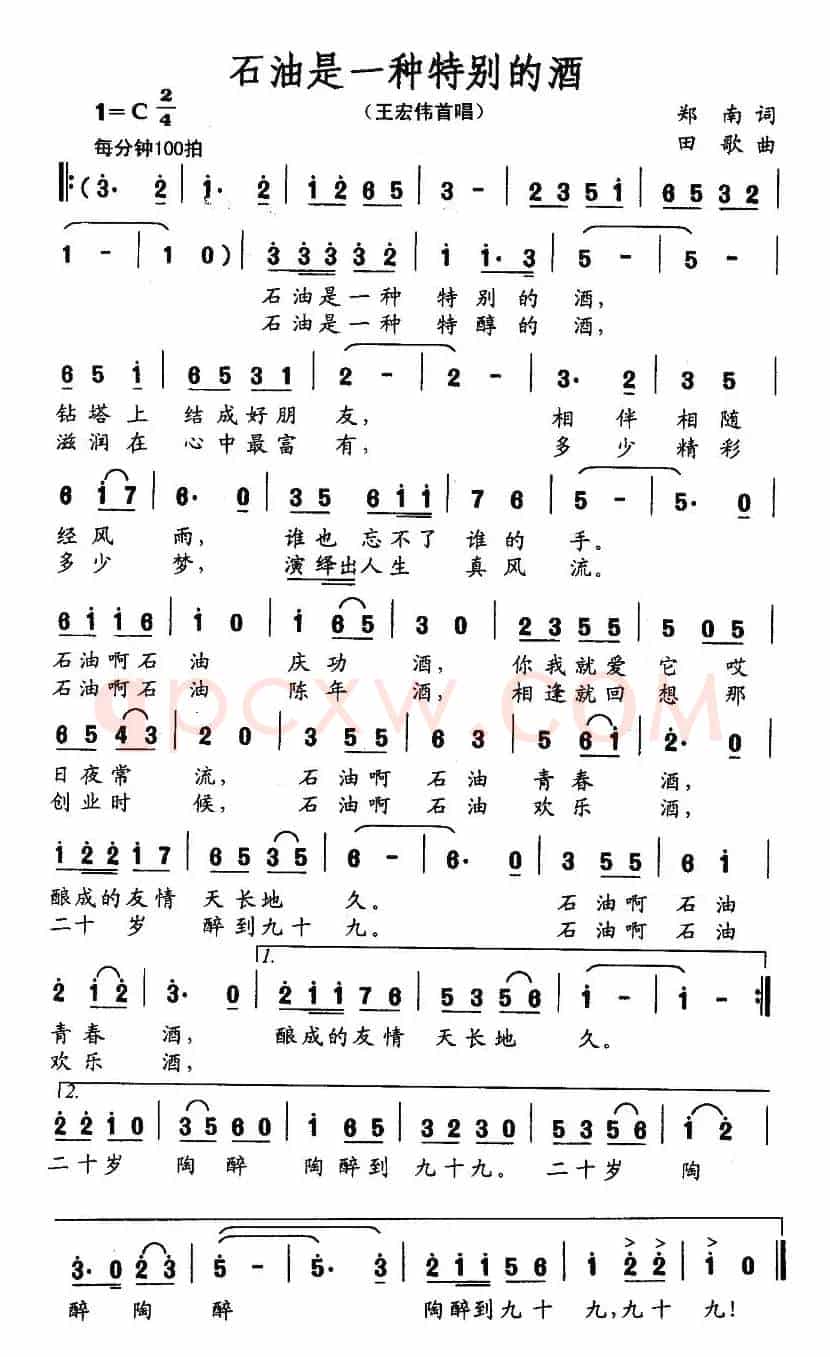 石油是一种特别的酒
1=C 2/4
(王宏伟首唱)
郑 南 词
每分钟100拍
田 歌 曲
‖:(3· 2 | 1· 2 | 1 2 6 5 | 3 - | 2 3 5 1 | 6 5 3 2 |
1 - | 1 0) | 3 3 3 3 2 | 1 1·3 | 5 - | 5 - |
石油是一种 特别的 酒,
石油是一种 特醇的 酒,
6 5 1 | 6 5 3 1 | 2 - | 2 - | 3· 2 | 3 5 |
钻塔上 结成好朋 友, 相 伴 相随
滋润在 心中最富 有, 多 少 精彩
6 1 7 | 6· 0 | 3 5 6 1 1 | 7 6 | 5 - | 5· 0 |
经风 雨, 谁也 忘不了 谁的 手。
多少 梦, 演绎出人生 真风 流。
6 1 1 6 | 1 0 | 1 6 5 | 3 0 | 2 3 5 5 | 5 0 5 |
石油啊石 油 庆功 酒, 你我就爱 它 哎
石油啊石 油 陈年 酒, 相逢就回 想 那
qpcxw.COM
6 5 4 3 | 2 0 | 3 5 5 | 6 3 | 5 6 1 | 2· 0 |
日夜常 流, 石油啊 石油 青春 酒,
创业时 候, 石油啊 石油 欢乐 酒,
1 2 2 1 7 | 6 5 3 5 | 6 - | 6· 0 | 3 5 5 | 6 1 |
酿成的友情 天长地 久。 石油啊 石油
二十 岁 醉到九十 九。 石油啊 石油
1.
2 1 2 | 3· 0 | 2 1 1 7 6 | 5 3 5 6 | 1 - | 1 - :‖
青春 酒, 酿成的友情 天长地 久。
欢乐 酒,
2.
2 2 1 0 | 3 5 6 0 | 1 6 5 | 3 2 3 0 | 5 3 5 6 | 1 2 |
二十岁 陶 醉 陶醉到 九十九。 二十岁 陶
3· 0 2 3 | 5 - | 5· 3 | 2 1 1 5 6 | 1 2 2 | 1 0 ‖
醉 陶 醉 陶醉到九十 九,九十 九!